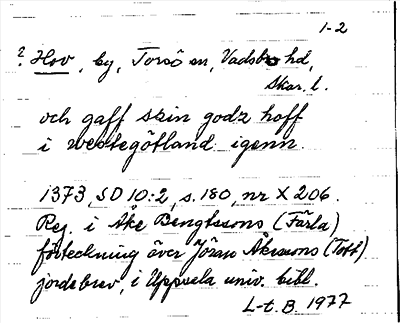 1-2
? Hov, by, Torsö sn, Vadsbo hd,
Skar. l.
och gaff skin godz hoff
i westegötland igenn.
1373, SD 10:2, s. 180, nr X 206.
Reg. i Åke Bengtssons (Färla)
förteckning över Jöran Åkessons (Tott)
jordebrev, i Uppsala univ. bibl.
L-t. B. 1977